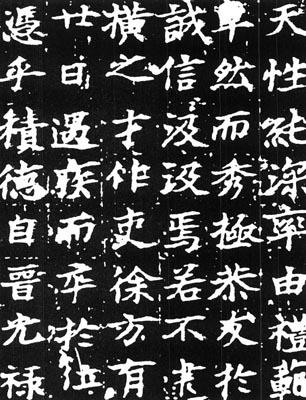 天性純深率由禮
卓然而秀極恭友於
誠信汲汲焉若不逮
橫之才作吏徐方有
廿日遇疾而卒於位
憑乎積德自晉光祿